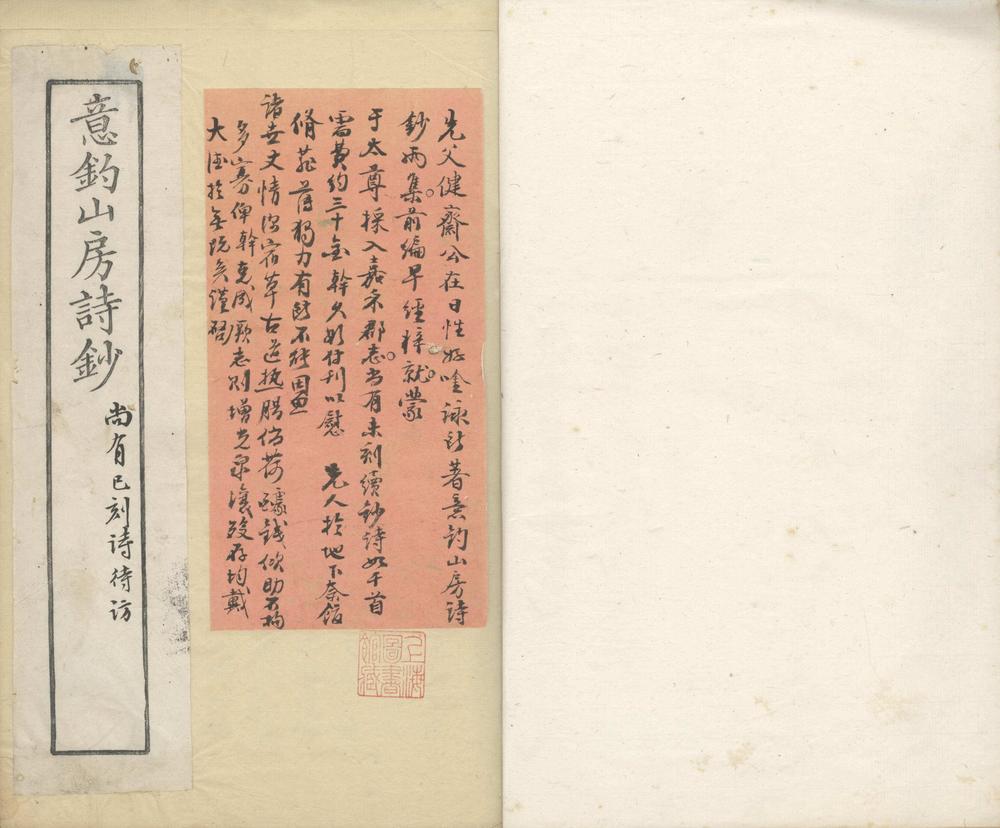 先父健齋公在日性好吟詠所著意釣山房詩
鈔兩集。前編早經梓就。蒙
于太尊採入嘉禾郡志。尚有未刻續鈔詩如干首
需費約三十金幹久欲付刊以慰 先人於地下奈館
脩菲薄獨力有所不能因思
諸世丈情深宿草古道熱腸倘荷醵錢佽助不拘
多寡俾幹克成厥志則增光泉壤歿存均戴
大德於無既矣謹啓
上海
圖書
館藏
意釣山房詩鈔
尚有已刻詩待訪